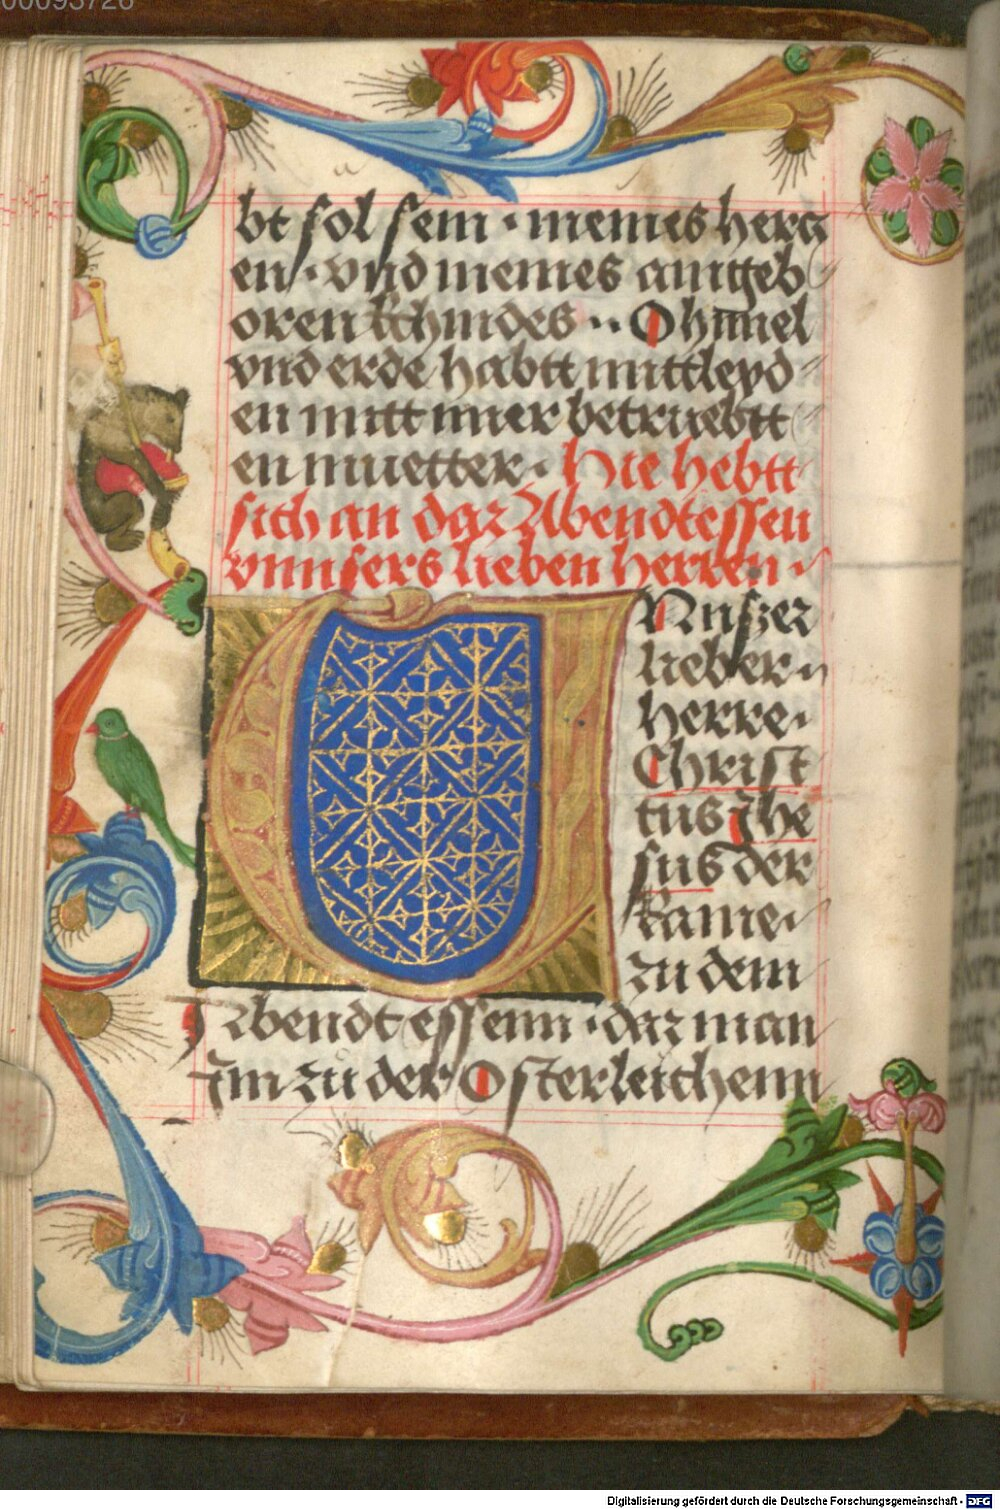 00093726
bt sol sein · meines hercz
en · vnd meines aingeb
oren Kchindes ·· O himel
vnd erde habtt mittleyd
en mitt mier betruebtt
en muetter · Hie hebtt
sich an daz Abendtessen
vnnsers lieben Herren ·
VNnszer
lieber
herre ·
Christ
tus Jhe
sus der
kame
zu dem
Abendtessenn · daz man
Jm zu der Osterleichenn
Digitalisierung gefördert durch die Deutsche Forschungsgemeinschaft - DFG